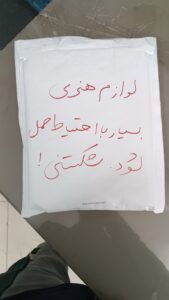 لوازم هنری
بسیار با احتیاط حمل
شود. شکستنی!